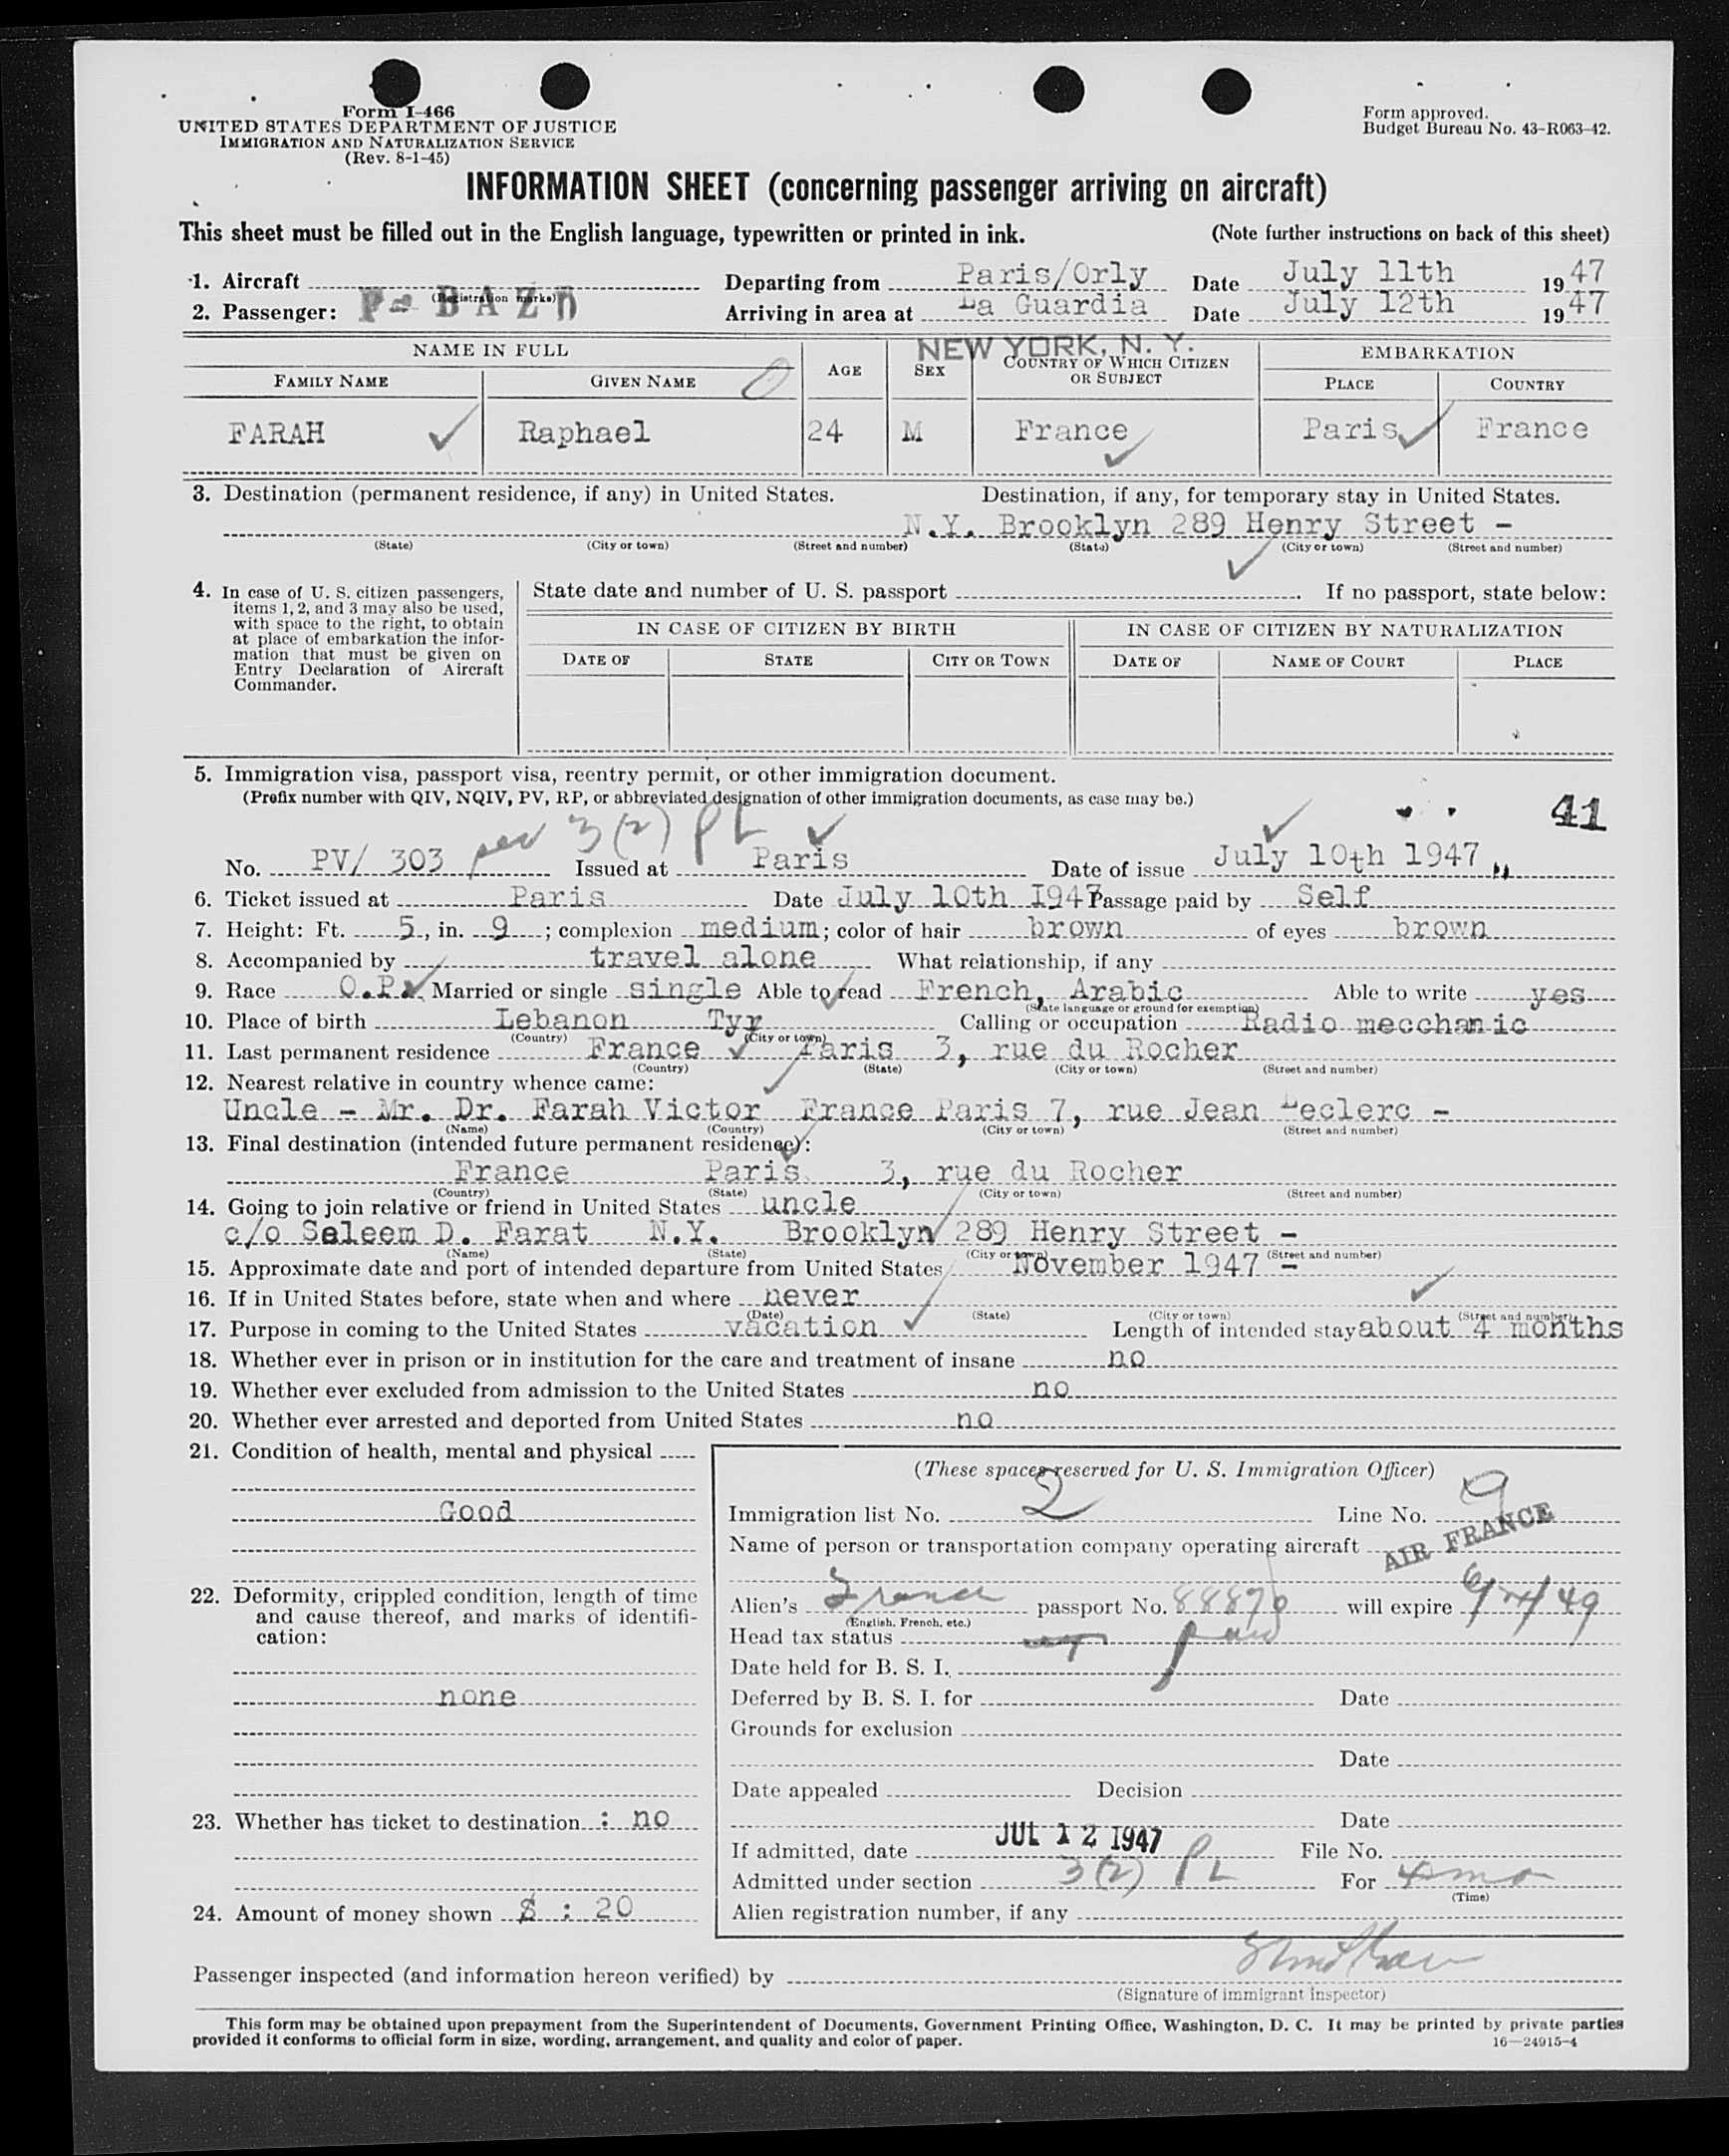 Form I-466
UNITED STATES DEPARTMENT OF JUSTICE
IMMIGRATION AND NATURALIZATION SERVICE
(Rev. 8-1-45)
Form approved.
Budget Bureau No. 43-R063-42.
INFORMATION SHEET (concerning passenger arriving on aircraft)
This sheet must be filled out in the English language, typewritten or printed in ink. (Note further instructions on back of this sheet)
1. Aircraft Departing from Paris/Orly Date July 11th 1947
(Registration marks)
2. Passenger: Arriving in area at La Guardia Date July 12th 1947
NEW YORK, N. Y.
NAME IN FULL AGE SEX COUNTRY OF WHICH CITIZEN OR SUBJECT EMBARKATION
FAMILY NAME GIVEN NAME PLACE COUNTRY
FARAH Raphael 24 M France Paris France
3. Destination (permanent residence, if any) in United States. Destination, if any, for temporary stay in United States.
N.Y. Brooklyn 289 Henry Street -
(State) (City or town) (Street and number) (State) (City or town) (Street and number)
4. In case of U. S. citizen passengers, items 1, 2, and 3 may also be used, with space to the right, to obtain at place of embarkation the information that must be given on Entry Declaration of Aircraft Commander.
State date and number of U. S. passport . If no passport, state below:
IN CASE OF CITIZEN BY BIRTH IN CASE OF CITIZEN BY NATURALIZATION
DATE OF STATE CITY OR TOWN DATE OF NAME OF COURT PLACE
5. Immigration visa, passport visa, reentry permit, or other immigration document.
(Prefix number with QIV, NQIV, PV, RP, or abbreviated designation of other immigration documents, as case may be.)
41
3(2) PL
No. PV/ 303 Issued at Paris Date of issue July 10th 1947
6. Ticket issued at Paris Date July 10th I947 Passage paid by Self
7. Height: Ft. 5, in. 9; complexion medium; color of hair brown of eyes brown
8. Accompanied by travel alone What relationship, if any
9. Race O.P. Married or single single Able to read French, Arabic Able to write yes
(State language or ground for exemption)
10. Place of birth Lebanon Tyr Calling or occupation Radio mecchanic
(Country) (City or town)
11. Last permanent residence France Paris 3, rue du Rocher
(Country) (State) (City or town) (Street and number)
12. Nearest relative in country whence came:
Uncle - Mr. Dr. Farah Victor France Paris 7, rue Jean Leclerc -
(Name) (Country) (City or town) (Street and number)
13. Final destination (intended future permanent residence):
France Paris 3, rue du Rocher
(Country) (State) (City or town) (Street and number)
14. Going to join relative or friend in United States uncle
c/o Saleem D. Farat N.Y. Brooklyn 289 Henry Street -
(Name) (State) (City or town) (Street and number)
15. Approximate date and port of intended departure from United States November 1947 -
16. If in United States before, state when and where never
(Date) (State) (City or town) (Street and number)
17. Purpose in coming to the United States vacation Length of intended stay about 4 months
18. Whether ever in prison or in institution for the care and treatment of insane no
19. Whether ever excluded from admission to the United States no
20. Whether ever arrested and deported from United States no
21. Condition of health, mental and physical
Good
22. Deformity, crippled condition, length of time and cause thereof, and marks of identification:
none
23. Whether has ticket to destination : no
24. Amount of money shown $ : 20
(These spaces reserved for U. S. Immigration Officer)
Immigration list No. 2 Line No. 9
Name of person or transportation company operating aircraft AIR FRANCE
Alien's France passport No. 88870 will expire
(English, French, etc.)
Head tax status paid
Date held for B. S. I.
Deferred by B. S. I. for Date
Grounds for exclusion
Date
Date appealed Decision
Date
If admitted, date JUL 12 1947 File No.
Admitted under section 3(2) PL For 4 mo
(Time)
Alien registration number, if any
Passenger inspected (and information hereon verified) by
(Signature of immigrant inspector)
This form may be obtained upon prepayment from the Superintendent of Documents, Government Printing Office, Washington, D. C. It may be printed by private parties
provided it conforms to official form in size, wording, arrangement, and quality and color of paper. 16—24915-4